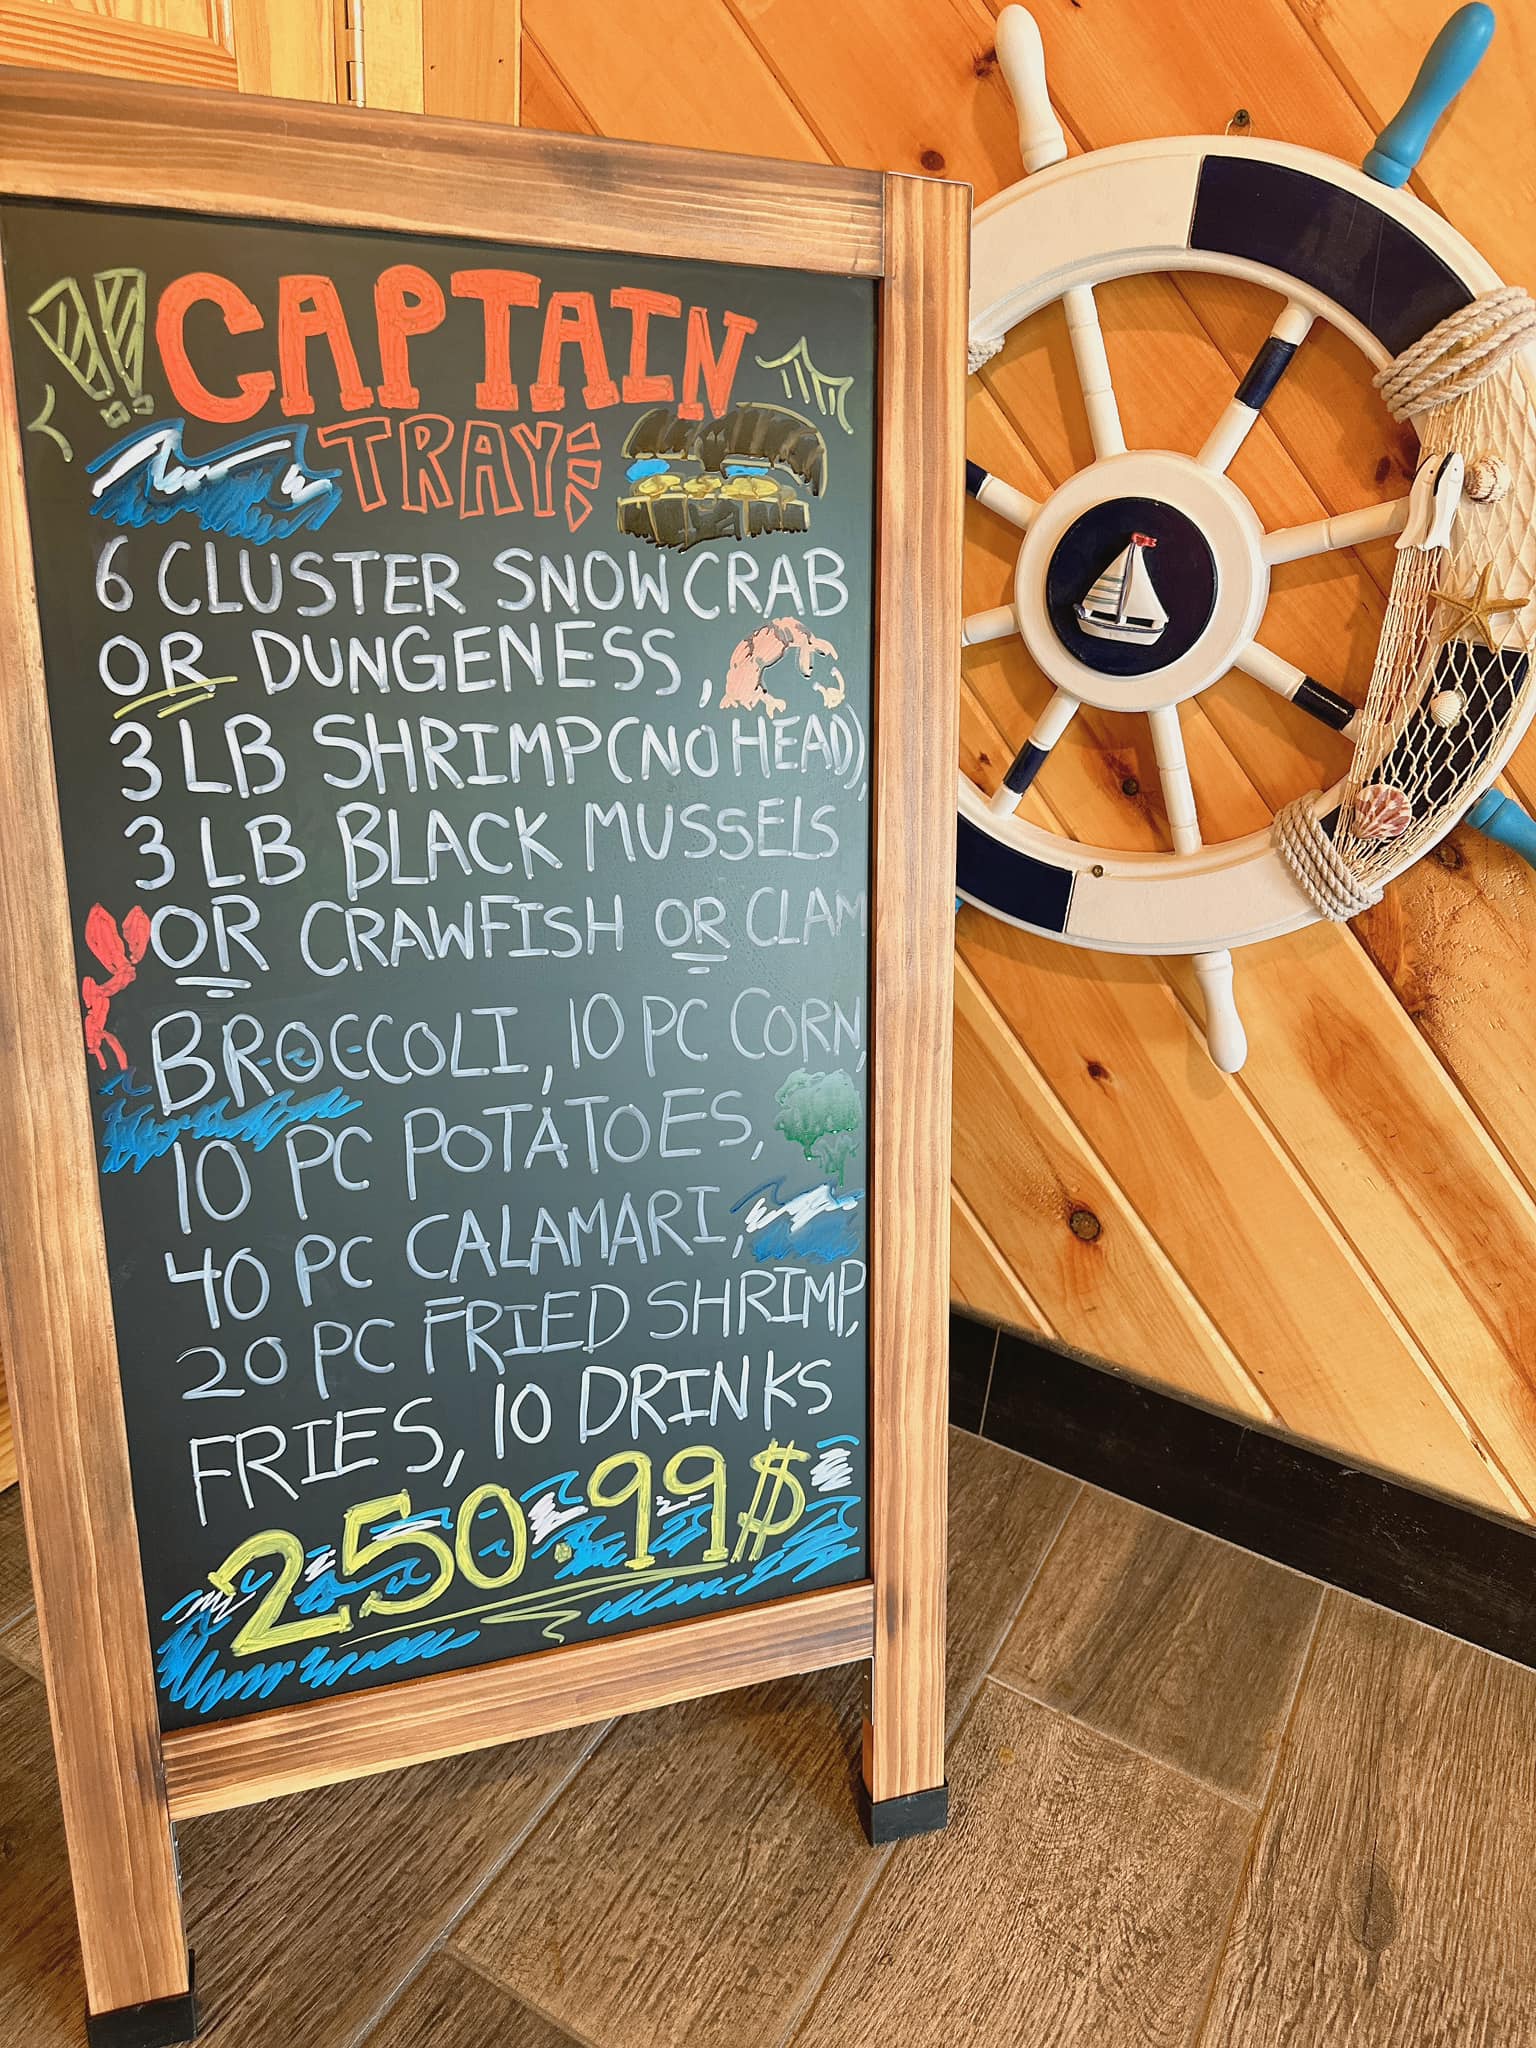 !! CAPTAIN
TRAY
6 CLUSTER SNOW CRAB
OR DUNGENESS,
3 LB SHRIMP (NO HEAD),
3 LB BLACK MUSSELS
OR CRAWFISH OR CLAM
BROCCOLI, 10 PC CORN,
10 PC POTATOES,
40 PC CALAMARI,
20 PC FRIED SHRIMP,
FRIES, 10 DRINKS
250.99$